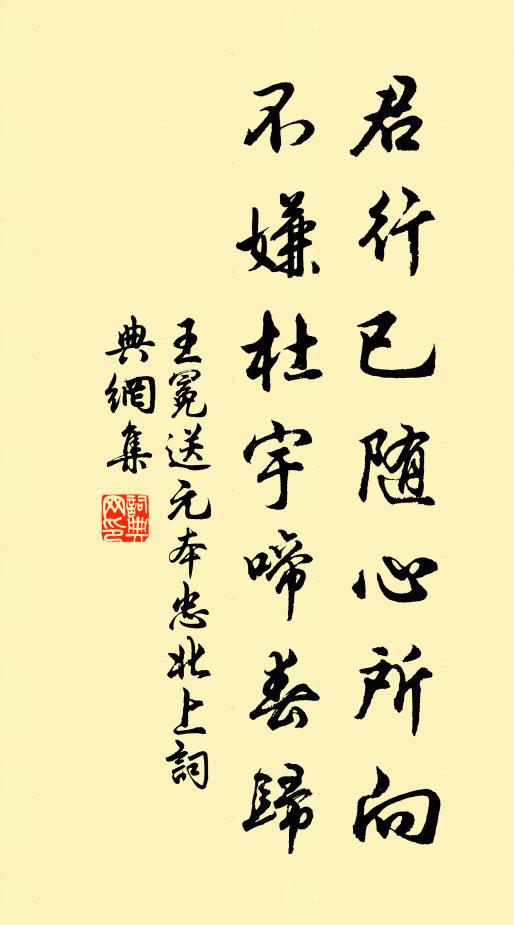 君行已随心所向
不嫌杜宇啼春歸
王冕送元本忠北上詞
典網集
詞典網印